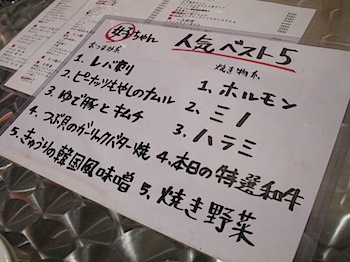 好ちゃん 人気ベスト5
おつまみ系
1. レバ刺
2. ピーナッツもやしのナムル
3. ゆで豚とキムチ
4. つぶ貝のガーリックバター焼
5. きゅうりの韓国風味噌
焼き物系
1. ホルモン
2. ミノ
3. ハラミ
4. 本日の特選和牛
5. 焼き野菜